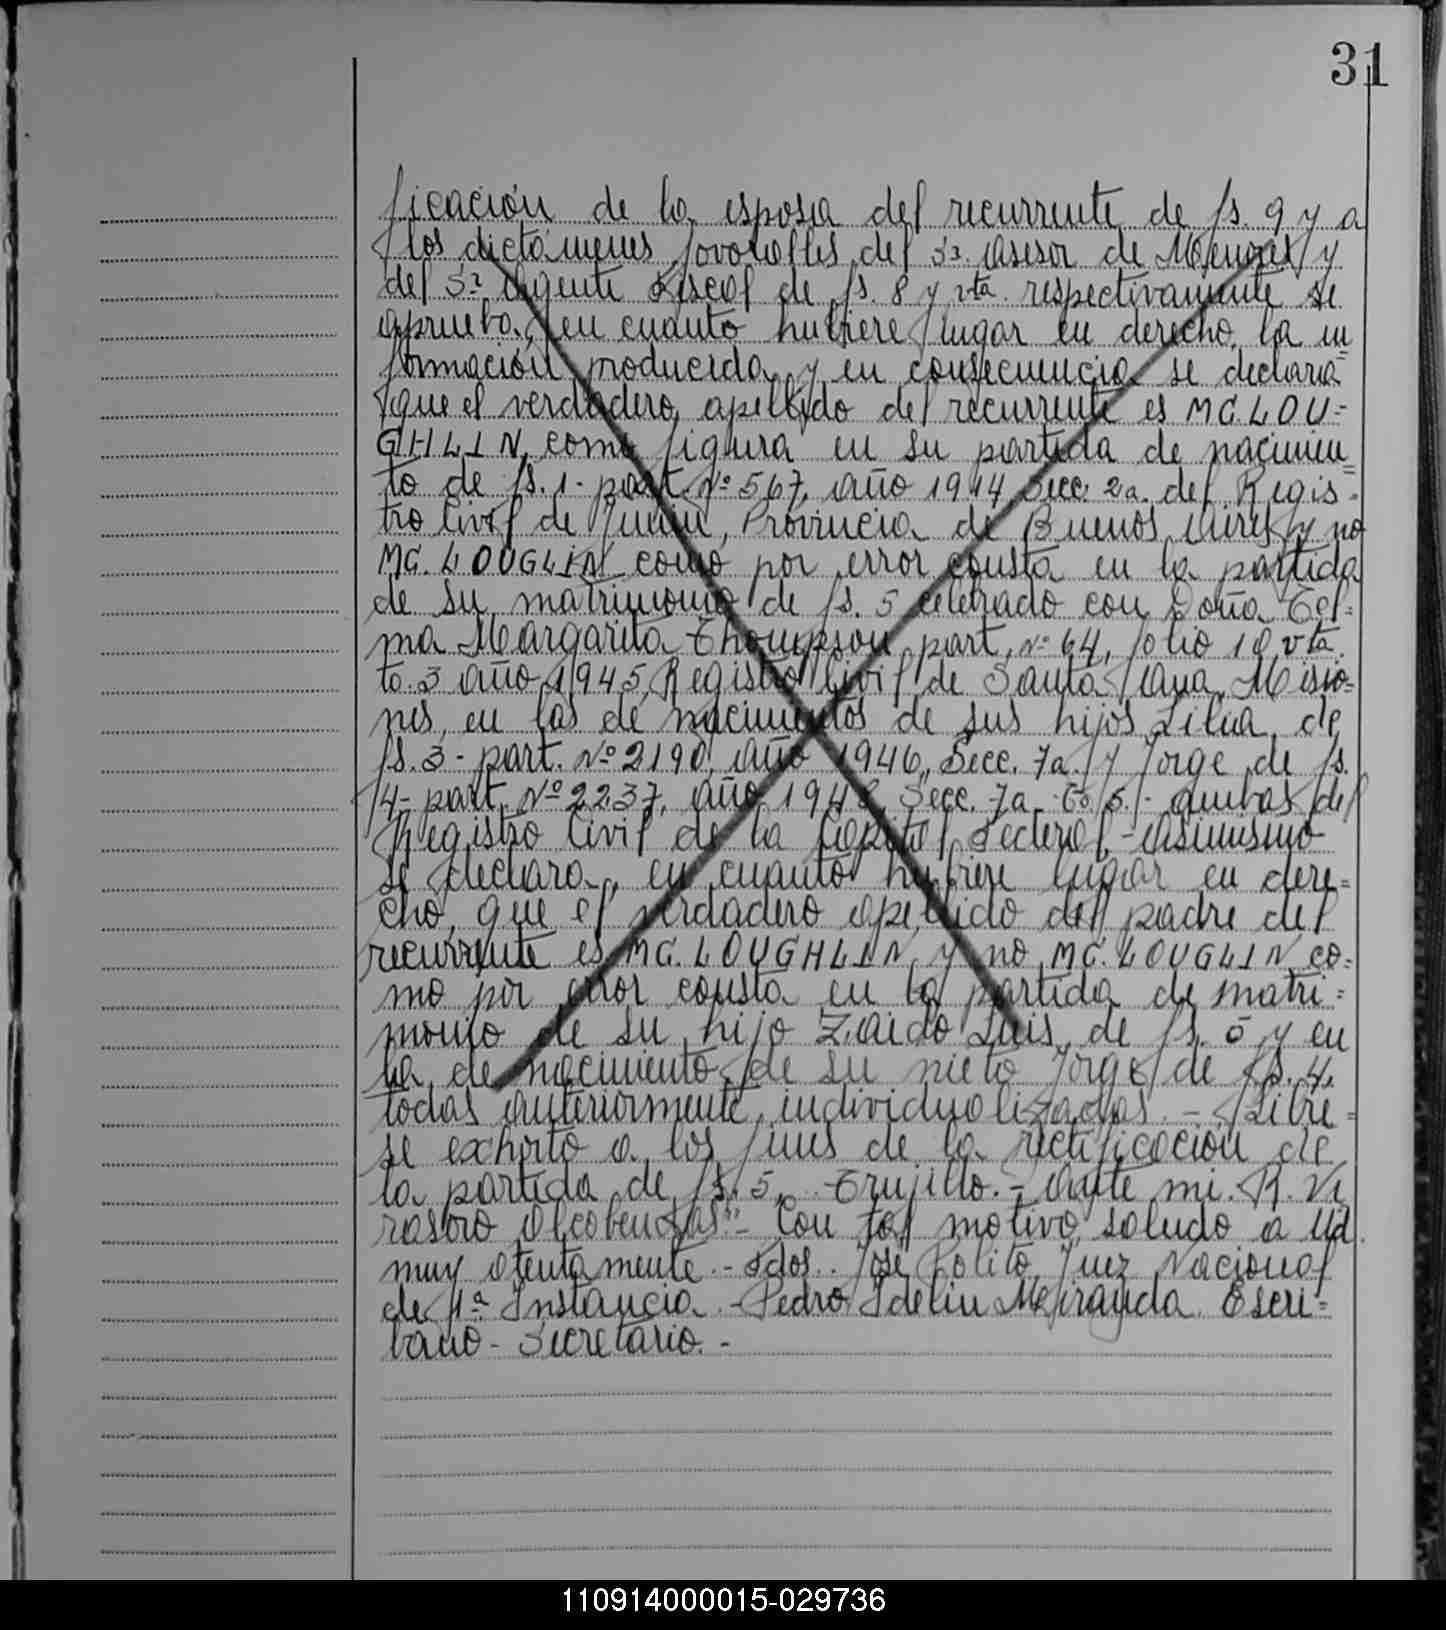 31
ficación de la esposa del recurrente de fs. 9 y a
los dictámenes favorables del Sr. Asesor de Menores y
del Sr. Agente Fiscal de fs. 8 y vta. respectivamente se
aprueba, en cuanto hubiere lugar en derecho, la in
formación producida y en consecuencia se declara
que el verdadero apellido del recurrente es MC. LOU=
GHLIN, como figura en su partida de nacimien=
to de fs. 1- part. Nº 567, año 1944 Secc. 2a. del Regis-
tro Civil de Junín, Provincia de Buenos Aires y no
MC. LOUGLIN como por error consta en la partida
de su matrimonio de fs. 5 celebrado con Doña Tel=
ma Margarita Thompson, part. Nº 64, folio 10 vta.
to. 3 año 1945 Registro Civil de Santa Ana, Misio=
nes, en las de nacimientos de sus hijos Lilia, de
fs. 3- part. Nº 2190, año 1946, Secc. 7a. y Jorge de fs.
4- part. Nº 2237, año 1948, Secc. 7a. ambas del
Registro Civil de la Capital Federal.- Asimismo
se declara, en cuanto hubiere lugar en dere=
cho, que el verdadero apellido del padre del
recurrente es MC. LOUGHLIN y no MC. LOUGLIN co=
mo por error consta en la partida de matri=
monio de su hijo Luis, de fs. 5 y en
la de nacimiento de su nieto Jorge de fs. 4,
todas anteriormente individualizadas.- Libre=
se exhorto a los fines de la rectificación de
la partida de fs. 5.- Trujillo.- Ante mí. R. Vi
rasoro Alcobendas".- Con tal motivo saludo a Ud.
muy atentamente.- Fdos. José Polito, Juez Nacional
de 1ª Instancia.- Pedro Idelin Miranda. Escri=
bano- Secretario.-
110914000015-029736